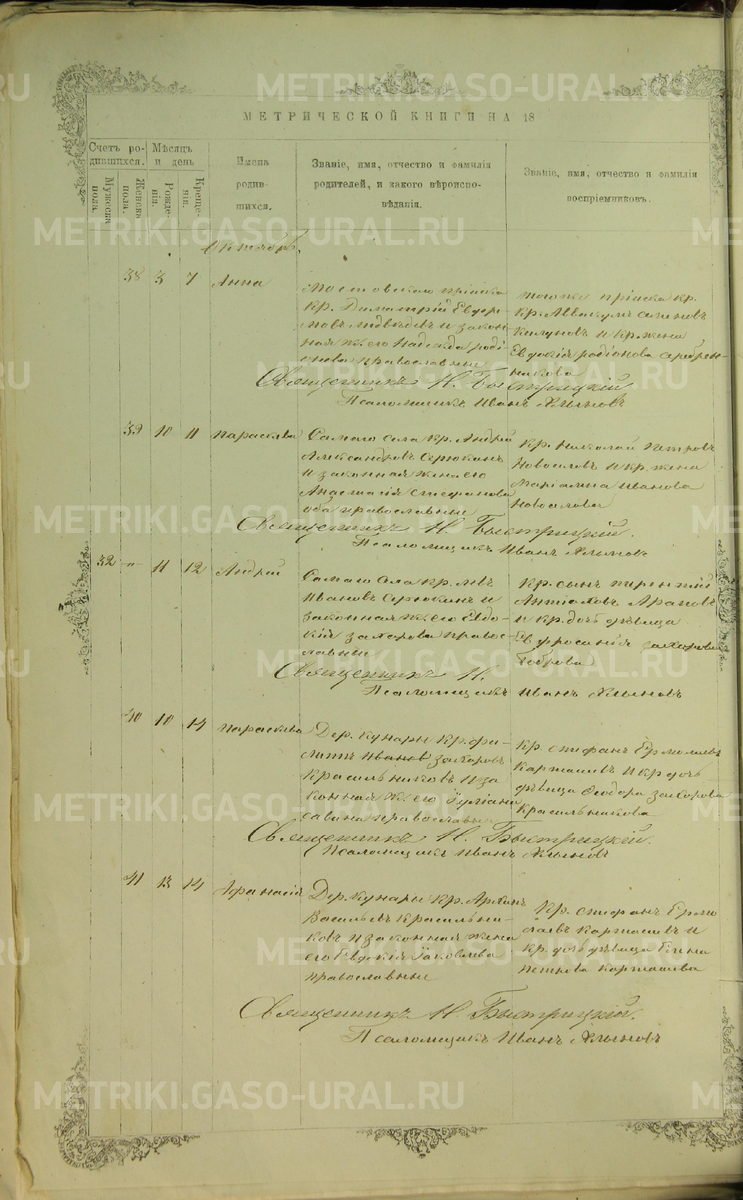 МЕТРИЧЕСКОЙ КНИГИ НА 18
Счетъ родившихся.
Мужеска пола.
Женска пола.
Мѣсяцъ и день
Рожденія.
Крещенія.
Имена родившихся.
Званіе, имя, отчество и фамилія
родителей, и какого вѣроиспо-
вѣданія.
Званіе, имя, отчество и фамилія
воспріемниковъ.
Октябрь.
38 3 7 Анна
Мостовскаго пріиска
кр. Димитрій
и закон-
ная ж. его Надежда Роді-
онова православные
того же пріиска кр.
кр. Аввакумъ
и кр. жена
Евдокія Родіонова Серебрен-
никова
Священникъ Н. Быстрицкій
Псаломщикъ Иванъ Хлыновъ
39 10 11 Параскева
Самаго села кр. Андрей
Александровъ
и законная жена его
Анастасія Стефанова
оба православные
кр. Николай Петровъ
Новословъ и кр. жена
Марiанна Иванова
Новослова
Священникъ Н. Быстрицкій.
Псаломщикъ Иванъ Хлыновъ
32 – 11 12 Андрей
Самаго села кр. Левъ
Ивановъ и
законная ж. его Евдо-
кія Захарова правос-
лавные
кр. сынъ
Араповъ
и кр. дочь дѣвица
Евфросинія Захарова
Священникъ Н.
Псаломщикъ Иванъ Хлыновъ
40 10 14 Параскева
Дер. Кунары кр. Фи-
липпъ Ивановъ Захаровъ
Красильниковъ и за-
конная ж. его Іуліана
Савина православные
кр. Стефанъ Ермолаевъ
Карташевъ и кр. дочь
дѣвица Ѳеодора Захарова
Красильникова
Священникъ Н. Быстрицкій.
Псаломщикъ Иванъ Хлыновъ
41 13 14 Афанасія
Дер. Кунары кр. Архипъ
Васильевъ Красильни-
ковъ и законная жена
его Евдокія Іаковлева
православные
кр. Стефанъ Ермо-
лаевъ Карташевъ и
кр. дочь дѣвица Елена
Петрова Карташева
Священникъ Н. Быстрицкій.
Псаломщикъ Иванъ Хлыновъ
METRIKI.GASO-URAL.RU